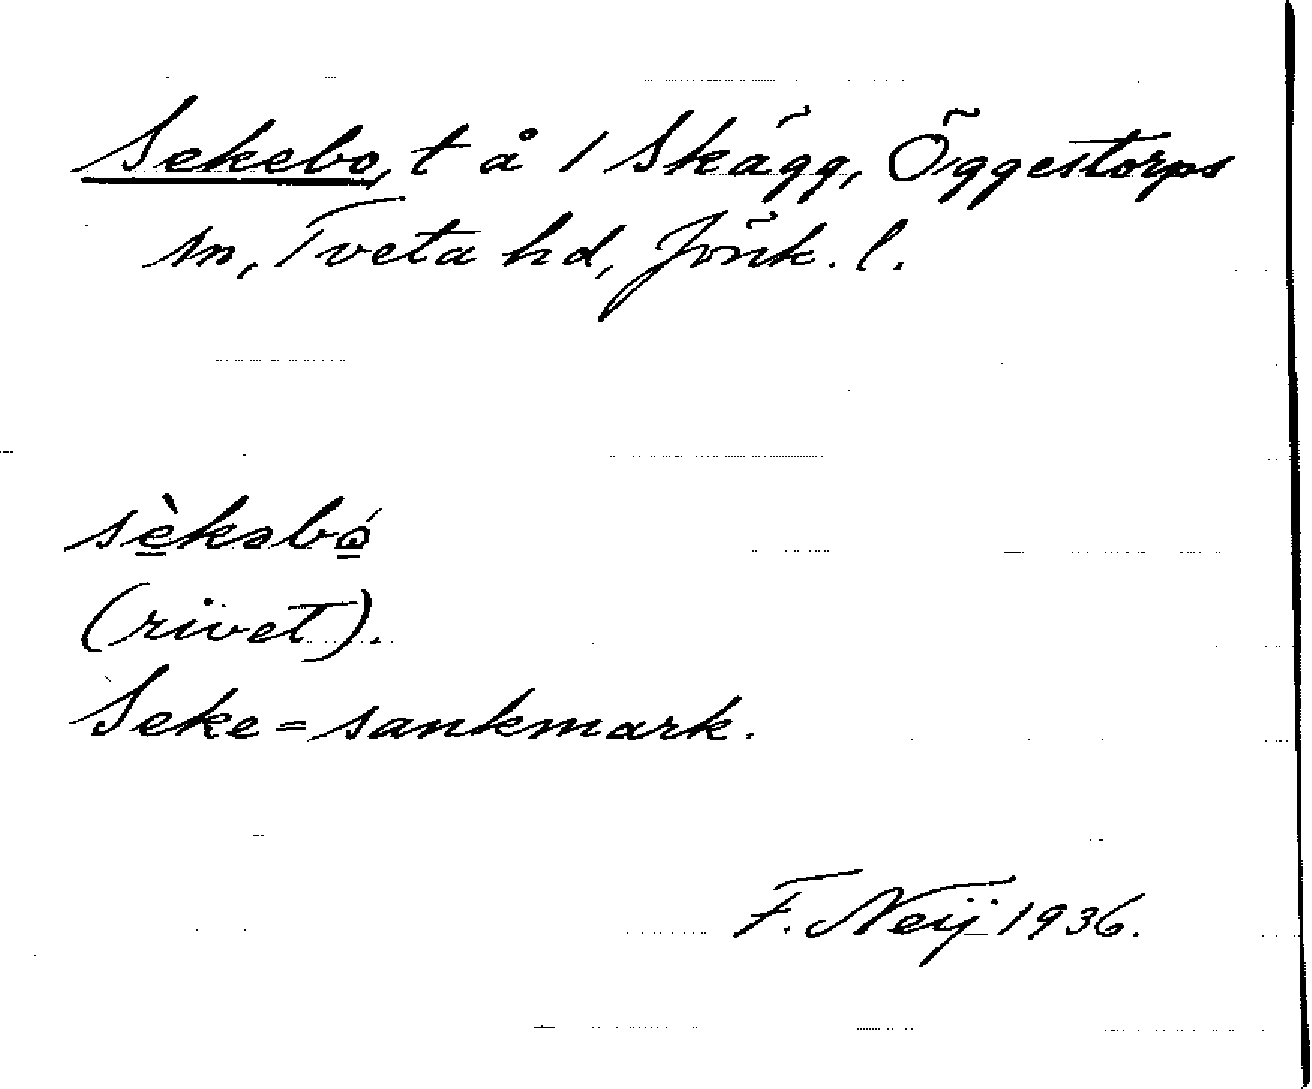 Sekebo, t å 1 Skägg, Öggestorps
sn, Tveta hd, Jönk. l.
sèkəbó
(rivet).
Seke = sankmark.
F. Neij 1936.